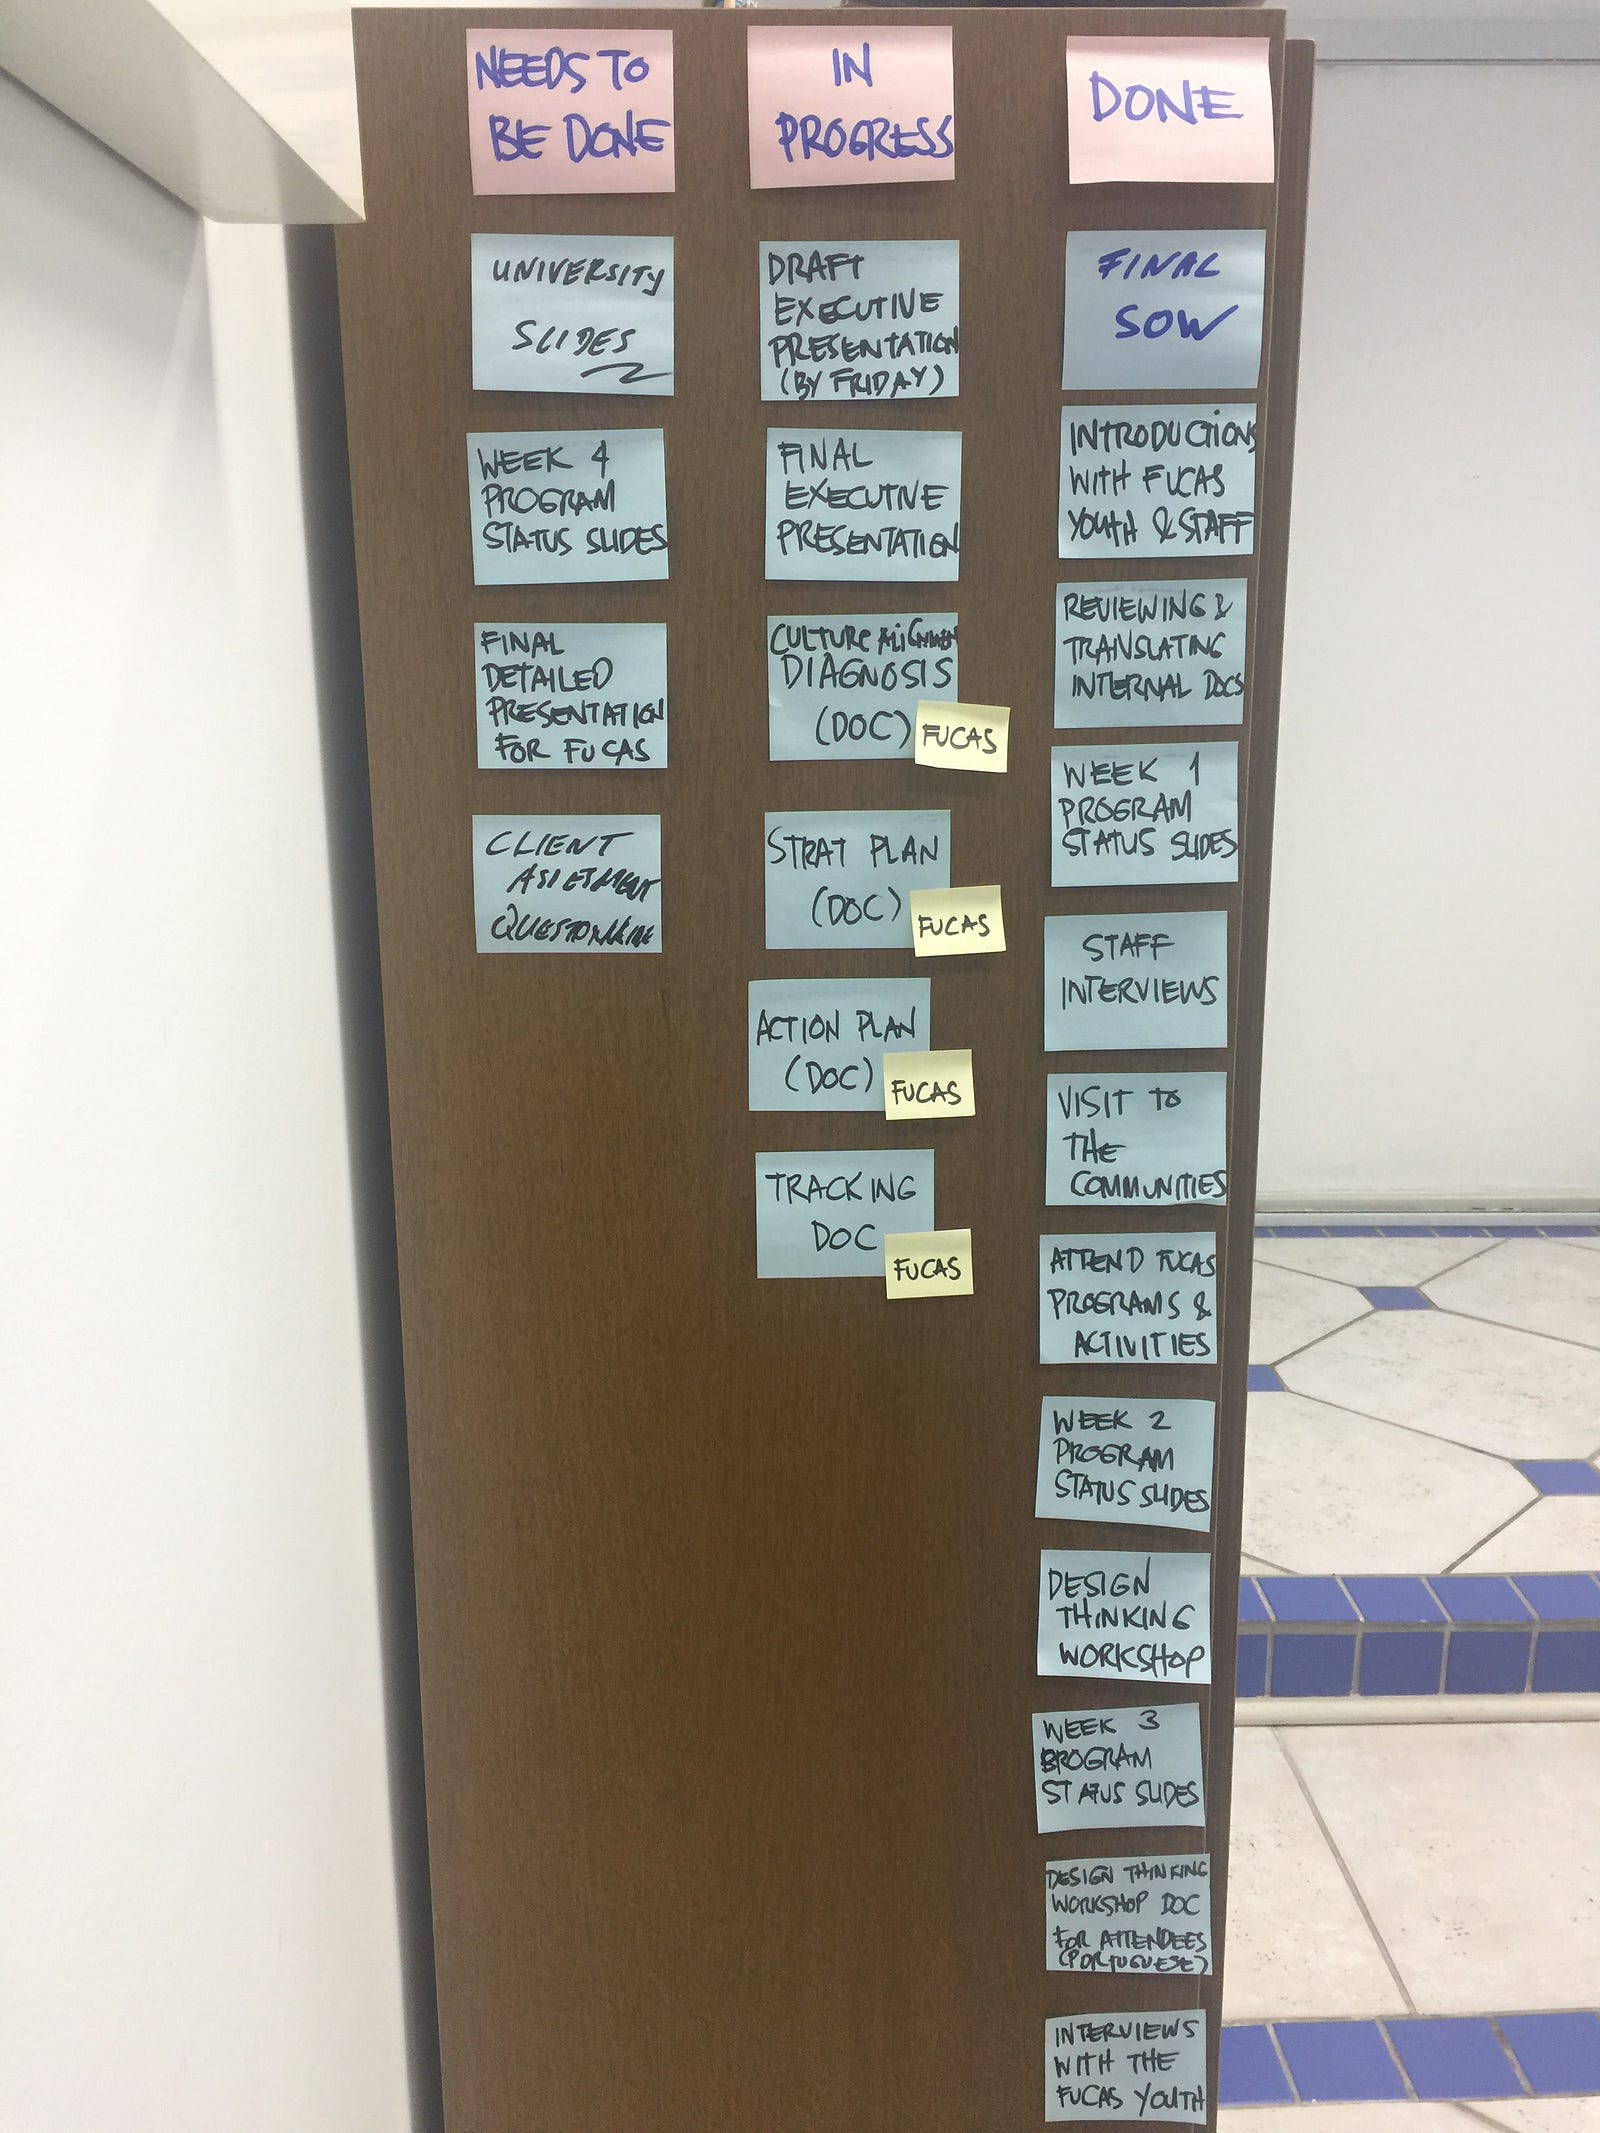 NEEDS TO
BE DONE
UNIVERSITY
SLIDES
WEEK 4
PROGRAM
STATUS SLIDES
FINAL
DETAILED
PRESENTATION
FOR FUCAS
CLIENT
IN
PROGRESS
DRAFT
EXECUTIVE
PRESENTATION
(BY FRIDAY)
FINAL
EXECUTIVE
PRESENTATION
CULTURE
DIAGNOSIS
(DOC)
FUCAS
STRAT PLAN
(DOC)
FUCAS
ACTION PLAN
(DOC)
FUCAS
TRACKING
DOC
FUCAS
DONE
FINAL
SOW
INTRODUCTIONS
WITH FUCAS
YOUTH & STAFF
REVIEWING &
TRANSLATING
INTERNAL DOCS
WEEK 1
PROGRAM
STATUS SLIDES
STAFF
INTERVIEWS
VISIT TO
THE
COMMUNITIES
ATTEND FUCAS
PROGRAMS &
ACTIVITIES
WEEK 2
PROGRAM
STATUS SLIDES
DESIGN
THINKING
WORKSHOP
WEEK 3
PROGRAM
STATUS SLIDES
DESIGN THINKING
WORKSHOP DOC
FOR ATTENDEES
(PORTUGUESE)
INTERVIEWS
WITH THE
FUCAS YOUTH